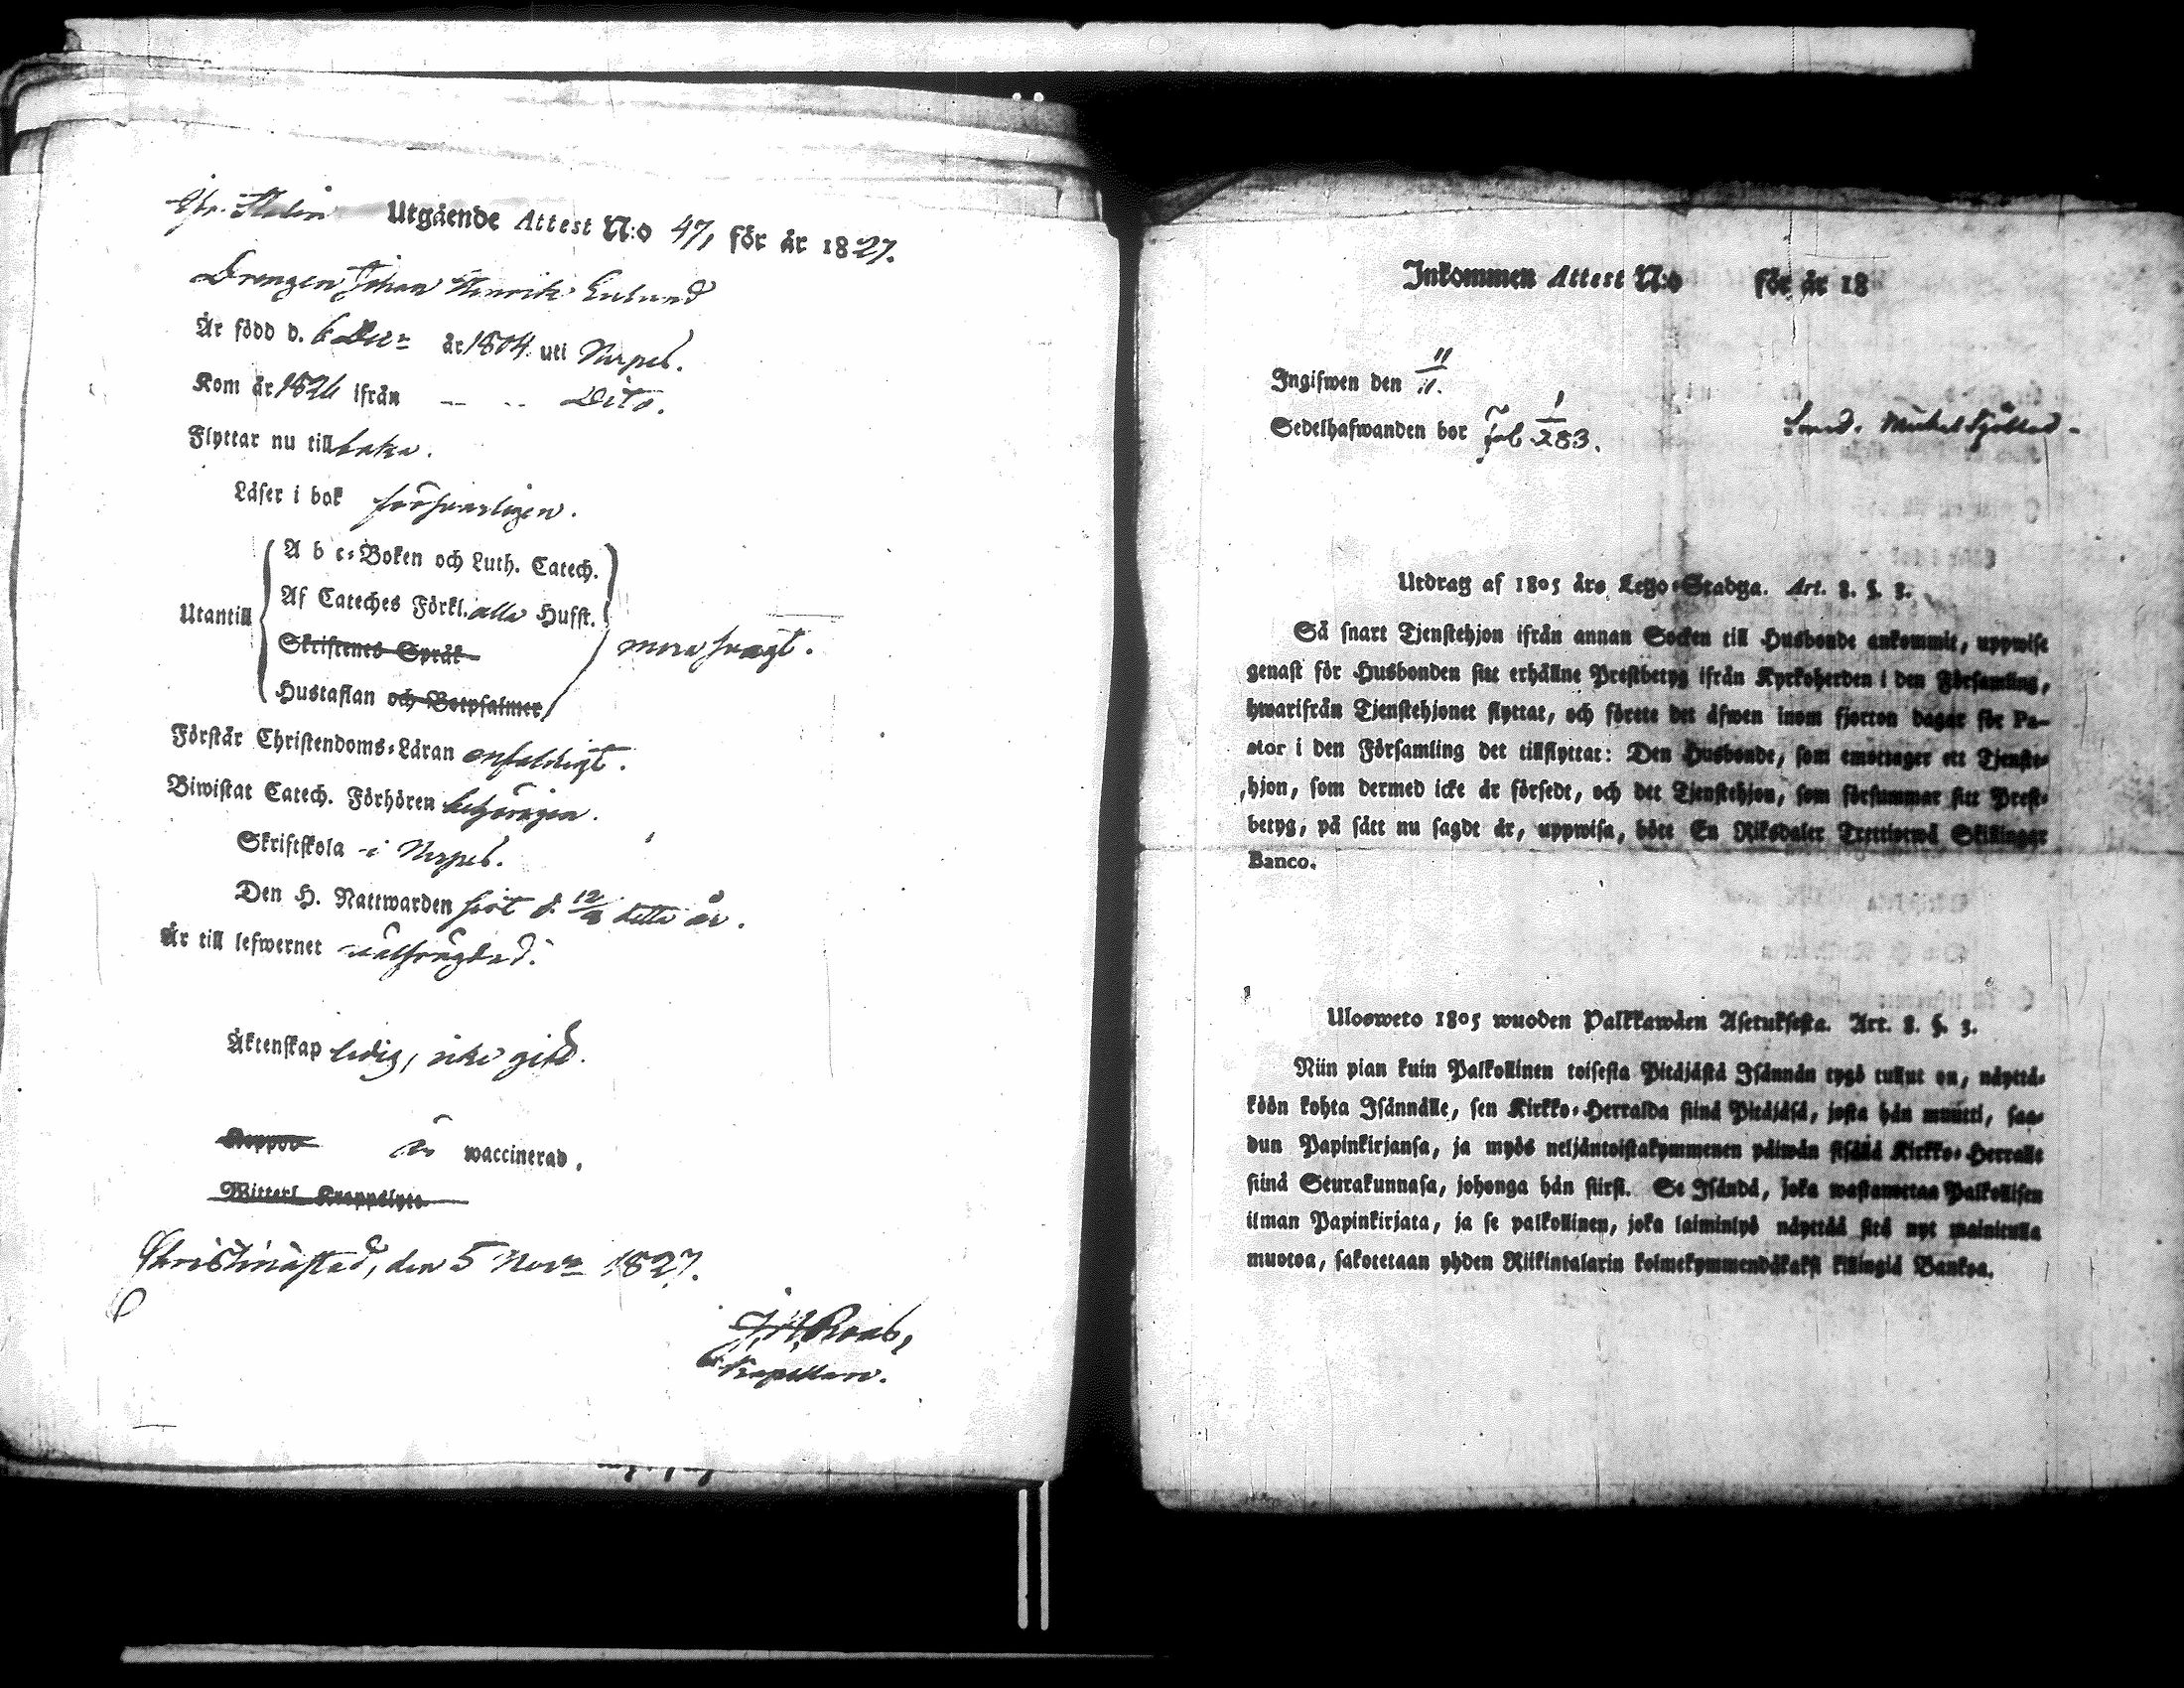 Utgående Attest N:o 47, för år 1827.
Drengen Johan Henrik Enlund
Är född d. 6 Decr år 1804 uti Nerpes.
Kom år 1826 ifrån — — Dito.
Flyttar nu till baka.
Läser i bok försvarligen.
Utantill
A b c-Boken och Luth. Catech.
Af Cateches Förkl. alla Husst.
Skriftenes Språk
Hustaflan och Botpsalmer
svagt.
Förstår Christendoms-Läran enfaldigt.
Biwistat Catech. Förhören behörigen.
Skriftskola i Nerpes.
Den H. Nattwarden d. 12/8 detta år.
Är till lefwernet
Äktenskap ledig, icke gift.
Koppor är waccinerad,
Witterl. Kroppslyte
Christinæstad, den 5 Novr 1827.
Kapellan.
Inkommen Attest N:o för år 18
Ingifwen den 11/11.
Sedelhafwanden bor fol 1/283.
Utdrag af 1805 års Lego-Stadga. Art. 8. §. 3.
Så snart Tjenstehjon ifrån annan Socken till Husbonde ankommit, uppwise
genast för Husbonden sitt erhållne Prestbetyg ifrån Kyrkoherden i den Församling,
hwarifrån Tjenstehjonet flyttat, och förete det äfwen inom fjorton dagar för Pa-
stor i den Församling det tillflyttat: Den Husbonde, som emottager ett Tjenste-
hjon, som dermed icke är försedt, och det Tjenstehjon, som försummar sitt Prest-
betyg, på sätt nu sagdt är, uppwisa, böte En Riksdaler Trettiotwå Skillingar
Banco.
Ulosweto 1805 wuoden Palkkawäen Asetuksesta. Art. 8. §. 3.
Niin pian kuin Palkollinen toisesta Pitäjästä Isännän tygö tullut on, näyttä-
köön kohta Isännälle, sen Kirkko-Herralda siinä Pitäjäsä, josta hän muutti, saa-
dun Papinkirjansa, ja myös neljäntoistakymmenen päiwän sisällä Kirkko-Herralle
siinä Seurakunnasa, johonga hän siirsi. Se Isändä, joka wastanottaa Palkollisen
ilman Papinkirjata, ja se palkollinen, joka laiminlyö näyttää sitä nyt mainitulla
muotoa, sakotetaan yhden Riikintalarin kolmekymmendäkaksi killingiä Bankoa.